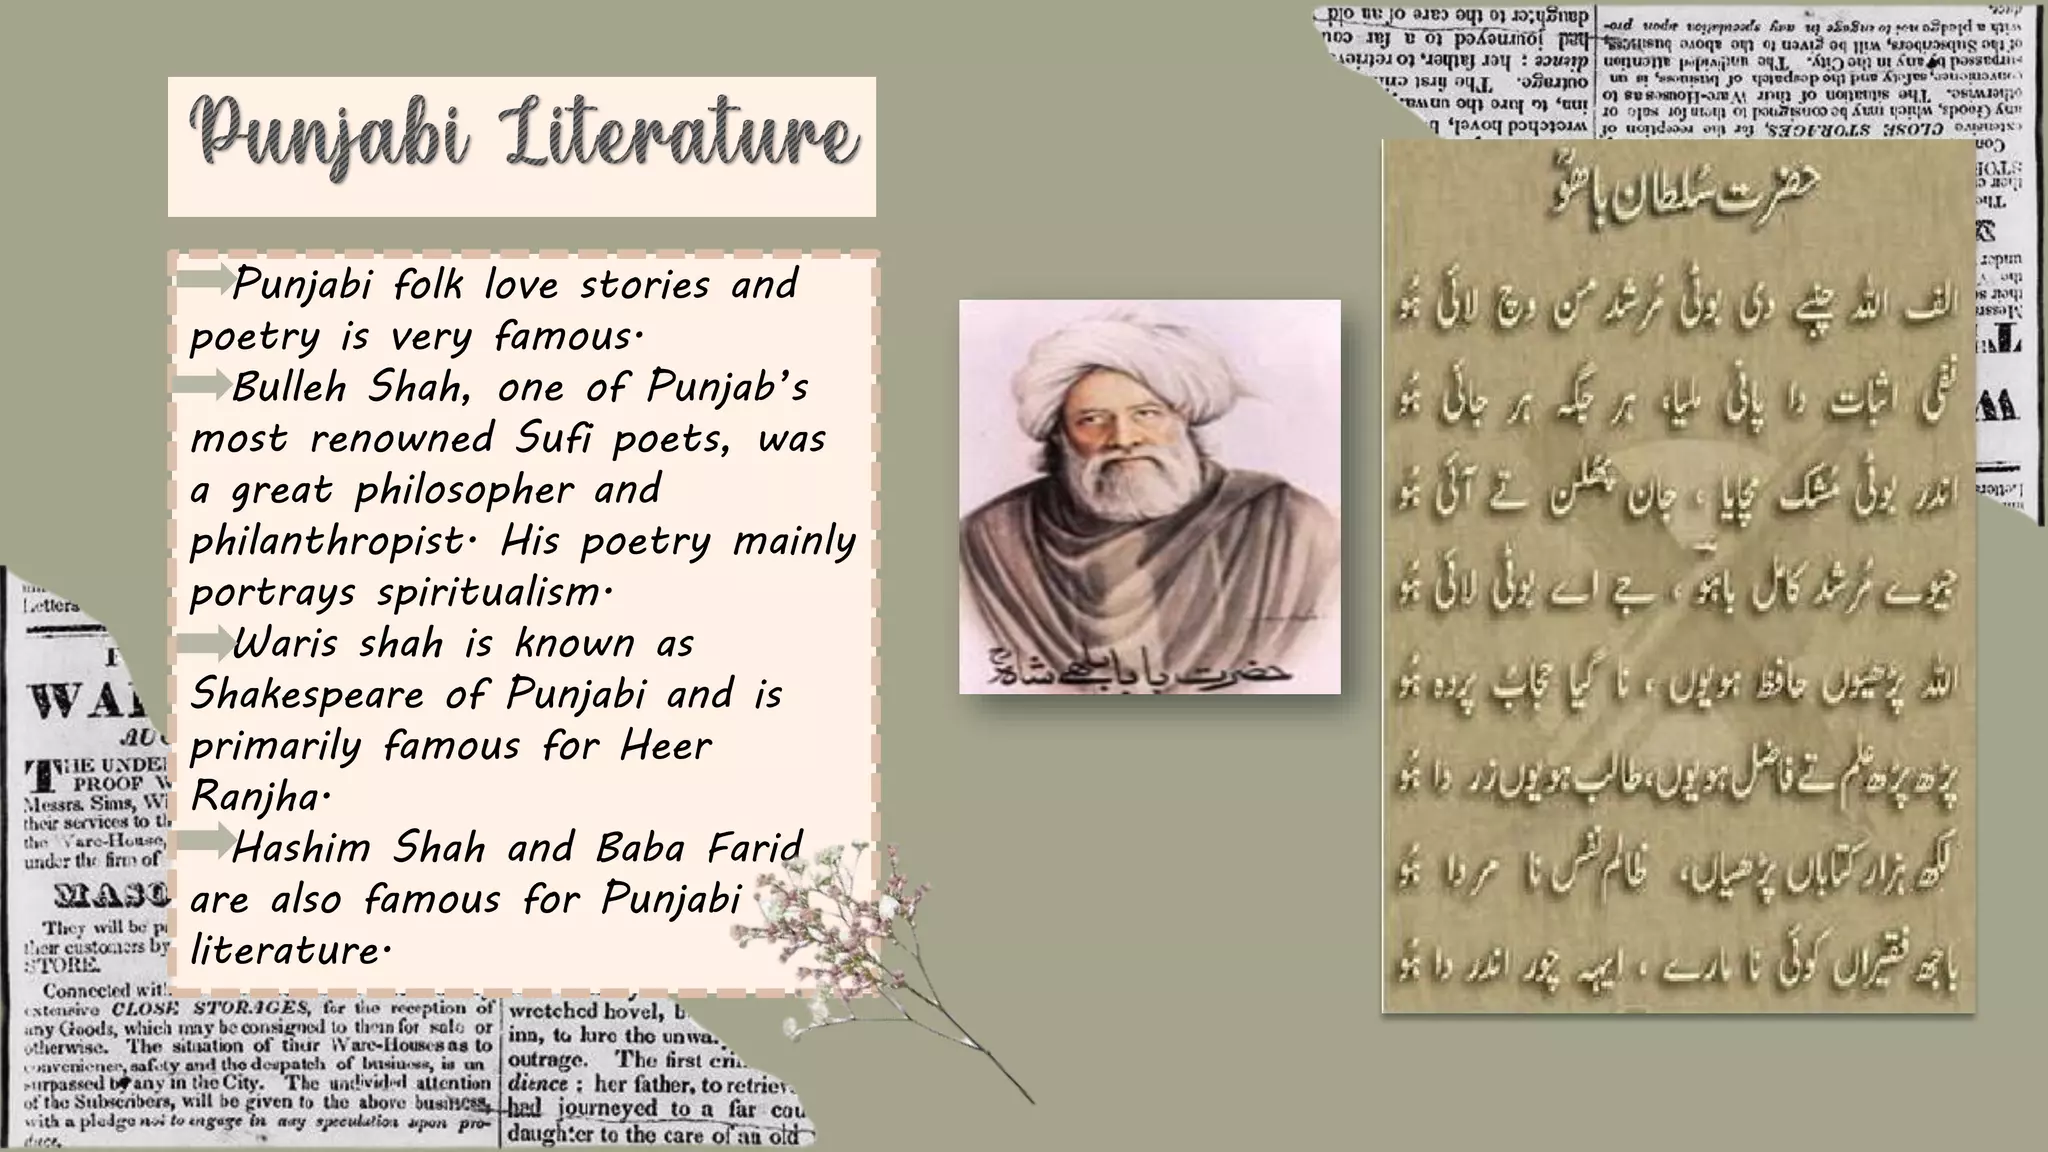 Punjabi Literature
Punjabi folk love stories and
poetry is very famous.
Bulleh Shah, one of Punjab’s
most renowned Sufi poets, was
a great philosopher and
philanthropist. His poetry mainly
portrays spiritualism.
Waris shah is known as
Shakespeare of Punjabi and is
primarily famous for Heer
Ranjha.
Hashim Shah and Baba Farid
are also famous for Punjabi
literature.
حضرت بابا بلھے شاہؒ
حضرت سُلطان باھُوؒ
الف اللہ چنبے دی بوٹی مُرشد من وچ لائی ھُو
نفی اثبات دا پانی ملیا، ہر جگہ ہر جائی ھُو
اندر بوٹی مُشک مچایا ، جان پھلن تے آئی ھُو
جیوے مُرشد کامل باہو ، جے اے بوٹی لائی ھُو
اللہ پڑھیوں حافظ ہویوں ، نا گیا حجابُ پردہ ھُو
پڑھ پڑھ علم تے فاضل ہویوں، طالب ہویوں زر دا ھُو
لکھ ہزار کتاباں پڑھیاں، ظالم نفس نا مردا ھُو
باجھ فقیراں کوئی نا مارے ، ایہہ چور اندر دا ھُو
Letters
WA
AUC
THE UNDE
PROOF W
Messrs. Sims, Wi
their services to th
the Ware-House,
under the firm of
MASO
They will be p
their customers by
STORE.
Connected wit
extensive CLOSE STORAGES, for the reception of
any Goods, which may be consigned to them for sale or
otherwise. The situation of their Ware-Houses as to
convenience, safety and the despatch of business, is un
surpassed by any in the City. The undivided attention
of the Subscribers, will be given to the above business,
with a pledge not to engage in any speculation upon pro-
duce.
wretched hovel, b
inn, to lure the unwa
outrage. The first cri
dience ; her father, to retriev
had journeyed to a far cou
daughter to the care of an old